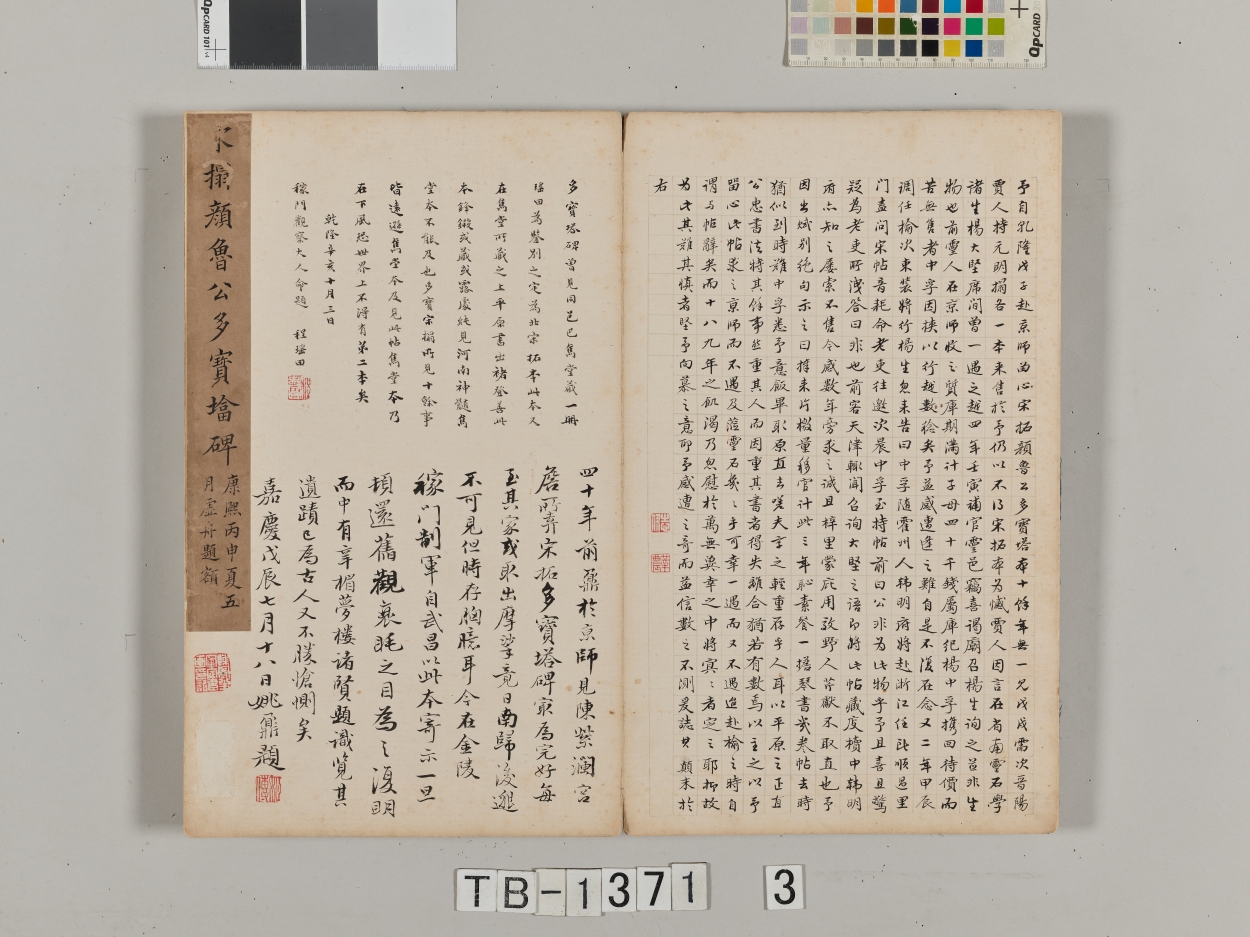 予自乾隆戊子赴京師留心宋拓顏魯公多寶塔本十餘年無一見戊戌需次晉陽
賈人持元明搨各一本來售於予仍以不得宋拓本为憾賈人因言在省南靈石學
諸生楊大堅席間曽一遇之越四年壬寅補官靈邑竊喜謁廟召楊生詢之苔非生
物也前靈人在京師收之質庫期滿計子母四十千錢屬庫纪楊中孚携回待價而
苦無售者中孚因挟以行越數稔矣予益感遭逢之難自是不復在念又二年甲辰
調任榆次束裝將行楊生忽来告曰中孚隨霍州人韩明府將赴浙江任此順過里
門盍问宋帖音耗命老吏往邀次晨中孚至持帖前曰公非为此物乎予且喜且驚
疑為老吏所洩答曰非也前客天津輙闻公詢大堅之語即將此帖藏度櫝中韩明
府亦知之屡索不售今感數年旁求之诚且梓里蒙庇用效野人芹獻不取直也予
因出贐别绝句示之曰
猶似到時难中孚悉予意飯畢取原直去嗟夫字之輕重在乎人耳以平原之正直
公忠書法特其餘事然重其人而因重其書者得失離合猶若有數焉以主之以予
留心此帖求之京師而不遇及蒞靈石㡬之乎可幸一遇而又不遇迨赴榆之時自
謂与帖辭矣而十八九年之飢渴乃忽慰於萬無兾幸之中將冥之者定之耶抑故
为此其难其慎者堅予向慕之意耶予感遭之奇而益信數之不測爰誌其顛末於
右
宋搨顏魯公多寶墖碑
康熙丙申夏五
月虚舟題籤
多寶塔碑曽見同邑巴雋堂藏一冊
瑶田為鑒别之定為北宋拓本此本又
在雋堂所藏之上平原書出褚登善此
本鋒鎩或藏或露處純見河南神髓雋
堂本不能及也多寶宋搨所見十餘事
皆遠遜雋堂本及見此帖雋堂本乃
在下風恐世界上不得有第二本矣
乾隆辛亥十月三日
稼門觀察大人命題 程瑶田
四十年前鼐於京師見陳紫瀾宫
詹所弆宋拓多寶塔碑最為完好每
至其家或取出摩挲竟日南歸後邈
不可見但時存胸臆耳今在金陵
稼門制軍自武昌以此本寄示一旦
頓還舊觀衰眊之目為之復明
而中有辛楣夢樓諸賢題識覽其
遺蹟已為古人又不勝愴惻矣
嘉慶戊辰七月十八日姚鼐題
QpCARD 101 v4
QpCARD
TB-1371 3